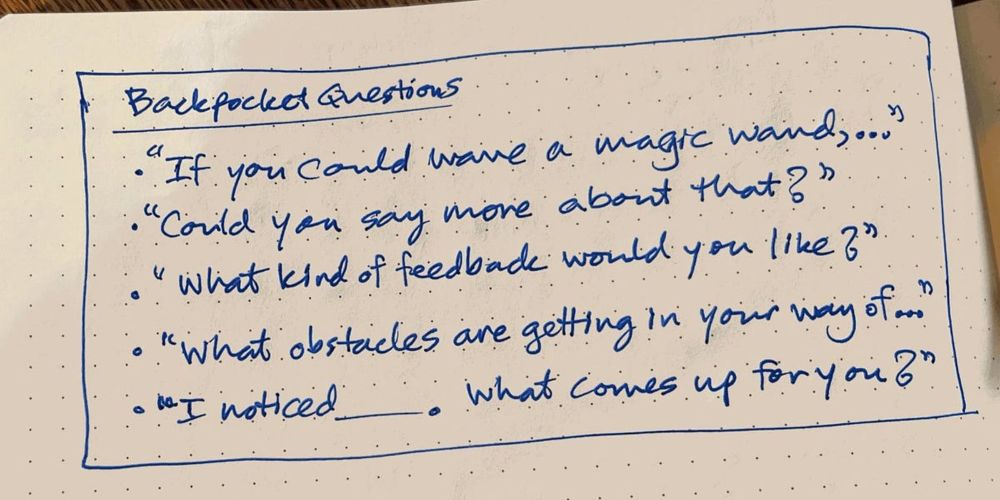 Backpocket Questions
• "If you could wave a magic wand,..."
• "Could you say more about that?"
• "What kind of feedback would you like?"
• "What obstacles are getting in your way of..."
• "I noticed_____. What comes up for you?"